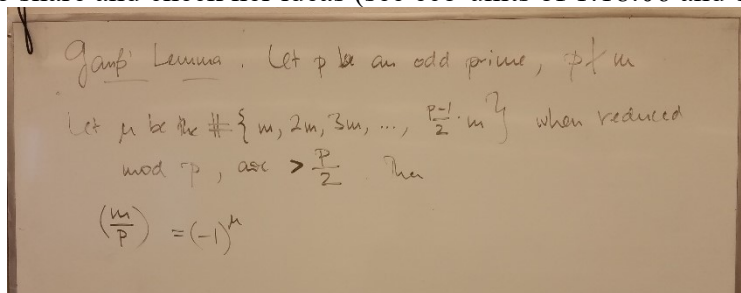 Gauß' Lemma. Let p be an odd prime, p∤m
Let μ be the # { m, 2m, 3m, ..., p-1/2 · m } when reduced
mod p, are > p/2. Then
(m/p) = (-1)^μ